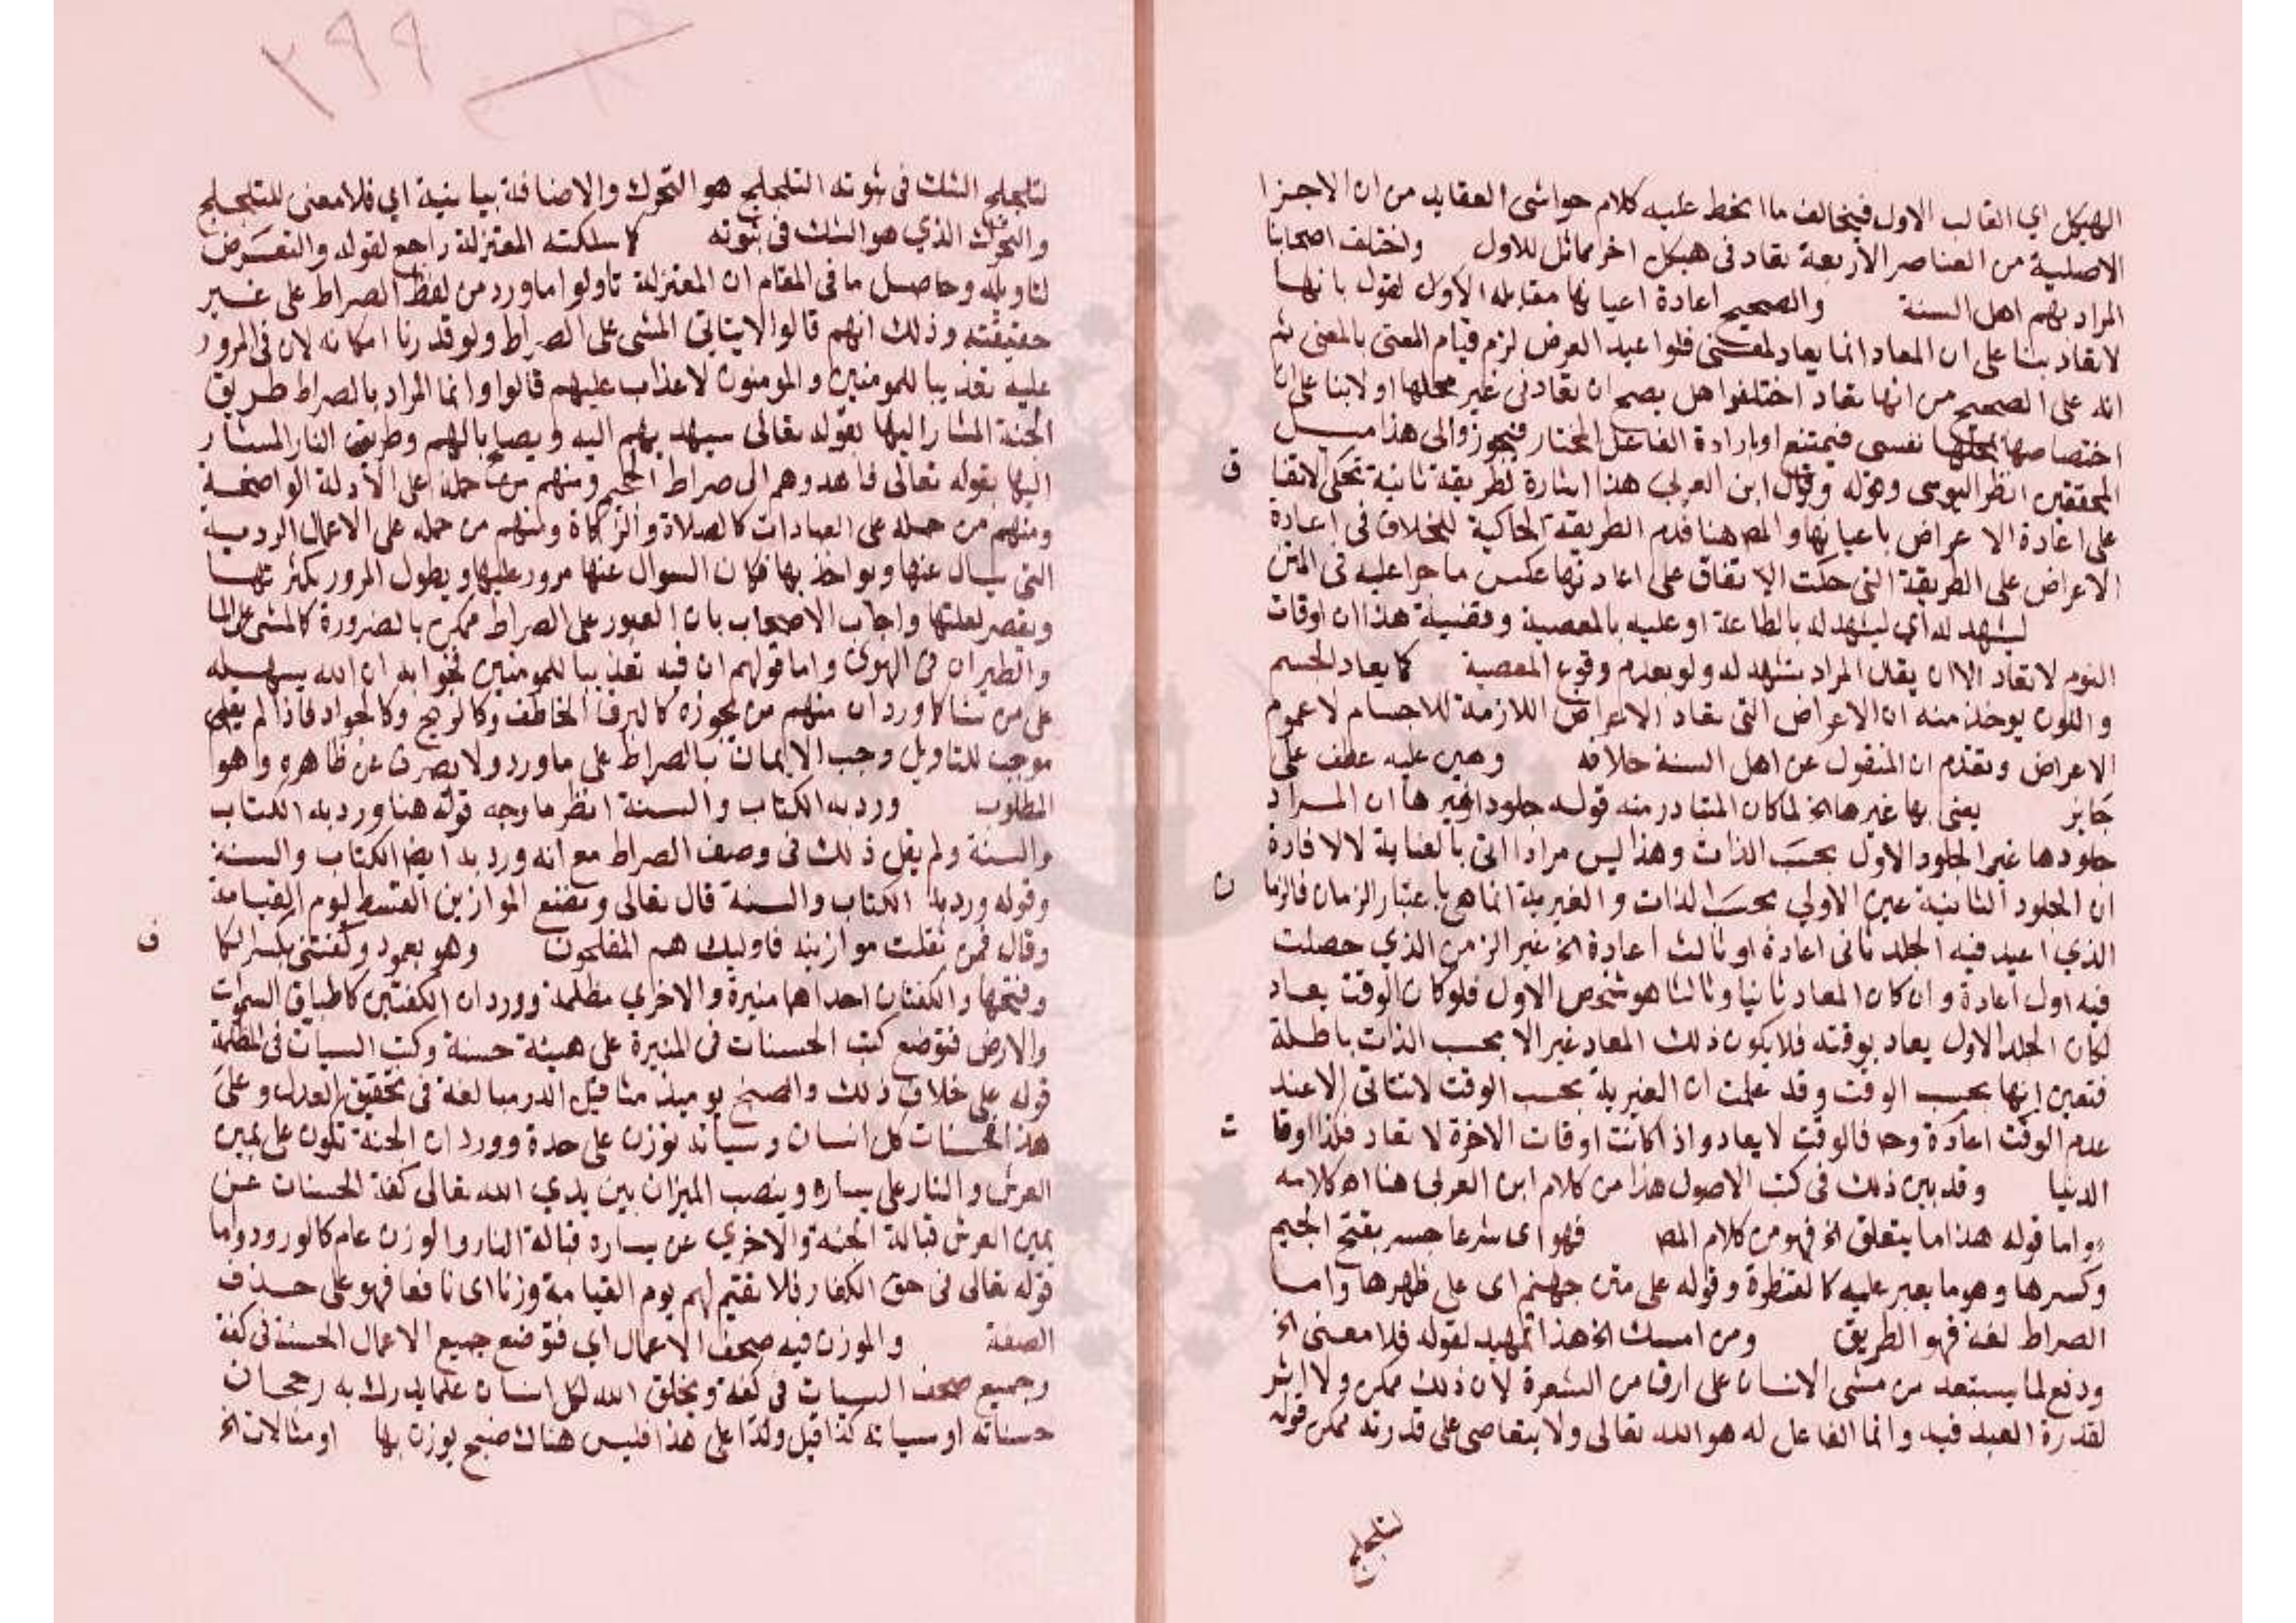 الهيكل اي القالب الاول فيخالف ما انحط عليه كلام حواشي العقايد من ان الاجزا
الاصلية من العناصر الأربعة تعاد في هيكل اخر مماثل للاول واختلف اصحابنا
المراد بهم اهل السنة والصحيح اعادة اعيانها مقابله الأول لقول بانها
لا تعاد بنا على ان المعاد انما يعاد لمعنى فلو اعيد العرض لزم قيام المعنى بالمعنى ثم
انه على الصحيح من انها تعاد اختلفوا هل يصح ان تعاد في غير محلها او لا بنا على ان
اختصاصها بمحلها نفسي فيمتنع او بارادة الفاعل المختار فيجوز والى هذا ميل
المحققين انظر اليوسي وقوله وقال ابن العربي هذا اشارة لطريقة ثانية تحكي الاتفا
ق
على اعادة الاعراض باعيانها والمص هنا قدم الطريقة الحاكية للخلاف في اعادة
الاعراض على الطريقة التي حكت الاتفاق على اعادتها عكس ما جرا عليه في المتن
ليشهد له اي ليشهد له بالطاعة او عليه بالمعصية وقضية هذا ان اوقات
النوم لا تعاد الا ان يقال المراد تشهد له ولو بعدم وقوع المعصية كما يعاد الجسم
واللون يوخذ منه ان الاعراض التي تعاد الاعراض اللازمة للاجسام لا عموم
الاعراض وتقدم ان المنقول عن اهل السنة خلافه وهين عليه عطف على
جايز يعني بها غيرها الخ لما كان المتبادر منه قوله جلودا غيرها ان المراد
جلودها غير الجلود الاول بحسب الذات وهذا ليس مرادا اتى بالعناية لافادة
ان الجلود الثانية عين الاولي بحسب الذات والغيرية انما هي باعتبار الزمان فالزما
ن
الذي اعيد فيه الجلد ثاني اعادة او ثالث اعادة الخ غير الزمن الذي حصلت
فيه اول اعادة وان كان المعاد ثانيا وثالثا هو شخص الاول فلو كان الوقت يعاد
لكان الجلد الاول يعاد بوقته فلا يكون ذلك المعاد غير الا بحسب الذات باطلة
فتعين انها بحسب الوقت وقد علمت ان الغيرية بحسب الوقت لا تتاتى الا عند
عدم الوقت اعادة وحا فالوقت لا يعاد واذا كانت اوقات الاخرة لا تعاد فكذا اوقا
ت
الدنيا وقد بين ذلك في كتب الاصول هذا من كلام ابن العربي هنا اه كلامه
واما قوله هذا ما يتعلق الخ فهو من كلام المص فهو اي شرعا جسر بفتح الجيم
وكسرها وهو ما يعبر عليه كالقنطرة وقوله على متن جهنم اي على ظهرها واما
الصراط لغة فهو الطريق ومن امسك الخ هذا تمهيد لقوله فلا معنى الخ
ودفع لما يستبعد من مشي الانسان على ارق من الشعرة لان ذلك ممكن ولا اثر
لقدرة العبد فيه وانما الفاعل له هو الله تعالى ولا يتعاصى على قدرته ممكن قوله
لتلجلج
٢٩٩
لتلجلج الشك في ثبوته التلجلج هو التحرك والاضافة بيانية اي فلا معنى للتلجلج
والتحرك الذي هو الشك في ثبوته كما سلكته المعتزلة راجع لقوله والتعرض
لتاويله وحاصل ما في المقام ان المعتزلة تاولوا ما ورد من لفظ الصراط على غير
حقيقته وذلك انهم قالوا لا يتاتى المشي على الصراط ولو قدرنا امكانه لان في المرور
عليه تعذيبا للمومنين والمومنون لا عذاب عليهم قالوا وانما المراد بالصراط طريق
الجنة المشار اليها بقوله تعالى سيهديهم اليه ويصلح بالهم وطريق النار المشار
اليها بقوله تعالى فاهدوهم الى صراط الجحيم ومنهم من حمله على الأدلة الواضحة
ومنهم من حمله على العبادات كالصلاة والزكاة ومنهم من حمله على الاعمال الردية
التي يسال عنها ويواخذ بها فكان السوال عنها مرور عليها ويطول المرور بكثرتها
ويقصر لقلتها واجاب الاصحاب بان العبور على الصراط ممكن بالضرورة كالمشي على الما
والطيران في الهوى واما قولهم ان فيه تعذيبا للمومنين فجوابه ان الله يسهله
على من شا كما ورد ان منهم من يجوزه كالبرق الخاطف وكالريح وكالجواد فاذا لم يبقى
موجب للتاويل وجب الايمان بالصراط على ما ورد ولا يصرف عن ظاهره وهو
المطلوب ورد به الكتاب والسنة انظر ما وجه قوله هنا ورد به الكتاب
والسنة ولم يقل ذلك في وصف الصراط مع انه ورد به ايضا الكتاب والسنة
وقوله ورد به الكتاب والسنة قال تعالى ونضع الموازين القسط ليوم القيامة
وقال فمن ثقلت موازينه فاوليك هم المفلحون وهو بعمود وكفتي بكسر الكا
ف
وفتحها والكفتان احداهما منيرة والاخري مظلمة وورد ان الكفتين كاطباق السموات
والارض فتوضع كتب الحسنات في المنيرة على هيئة حسنة وكتب السيات في المظلمة
قوله على خلاف ذلك والصنج يوميذ مثاقيل الذر مبالغة في تحقيق العدل وعلى
هذا فحسنات كل انسان وسياته توزن على حدة وورد ان الجنة تكون على يمين
العرش والنار على يساره وينصب الميزان بين يدي الله تعالى كفة الحسنات عن
يمين العرش قبالة الجنة والاخري عن يساره قبالة النار والوزن عام كالورود واما
قوله تعالى في حق الكفار فلا نقيم لهم يوم القيامة وزنا اي نافعا فهو على حذف
الصفة والموزن فيه صحف الاعمال اي فتوضع جميع الاعمال الحسنة في كفة
وجميع صحف السيات في كفة ويخلق الله لكل انسان علما يدرك به رجحان
حسناته او سياته كذا قيل ولذا على هذا فليس هناك صنج يوزن بها او مثالات الخ